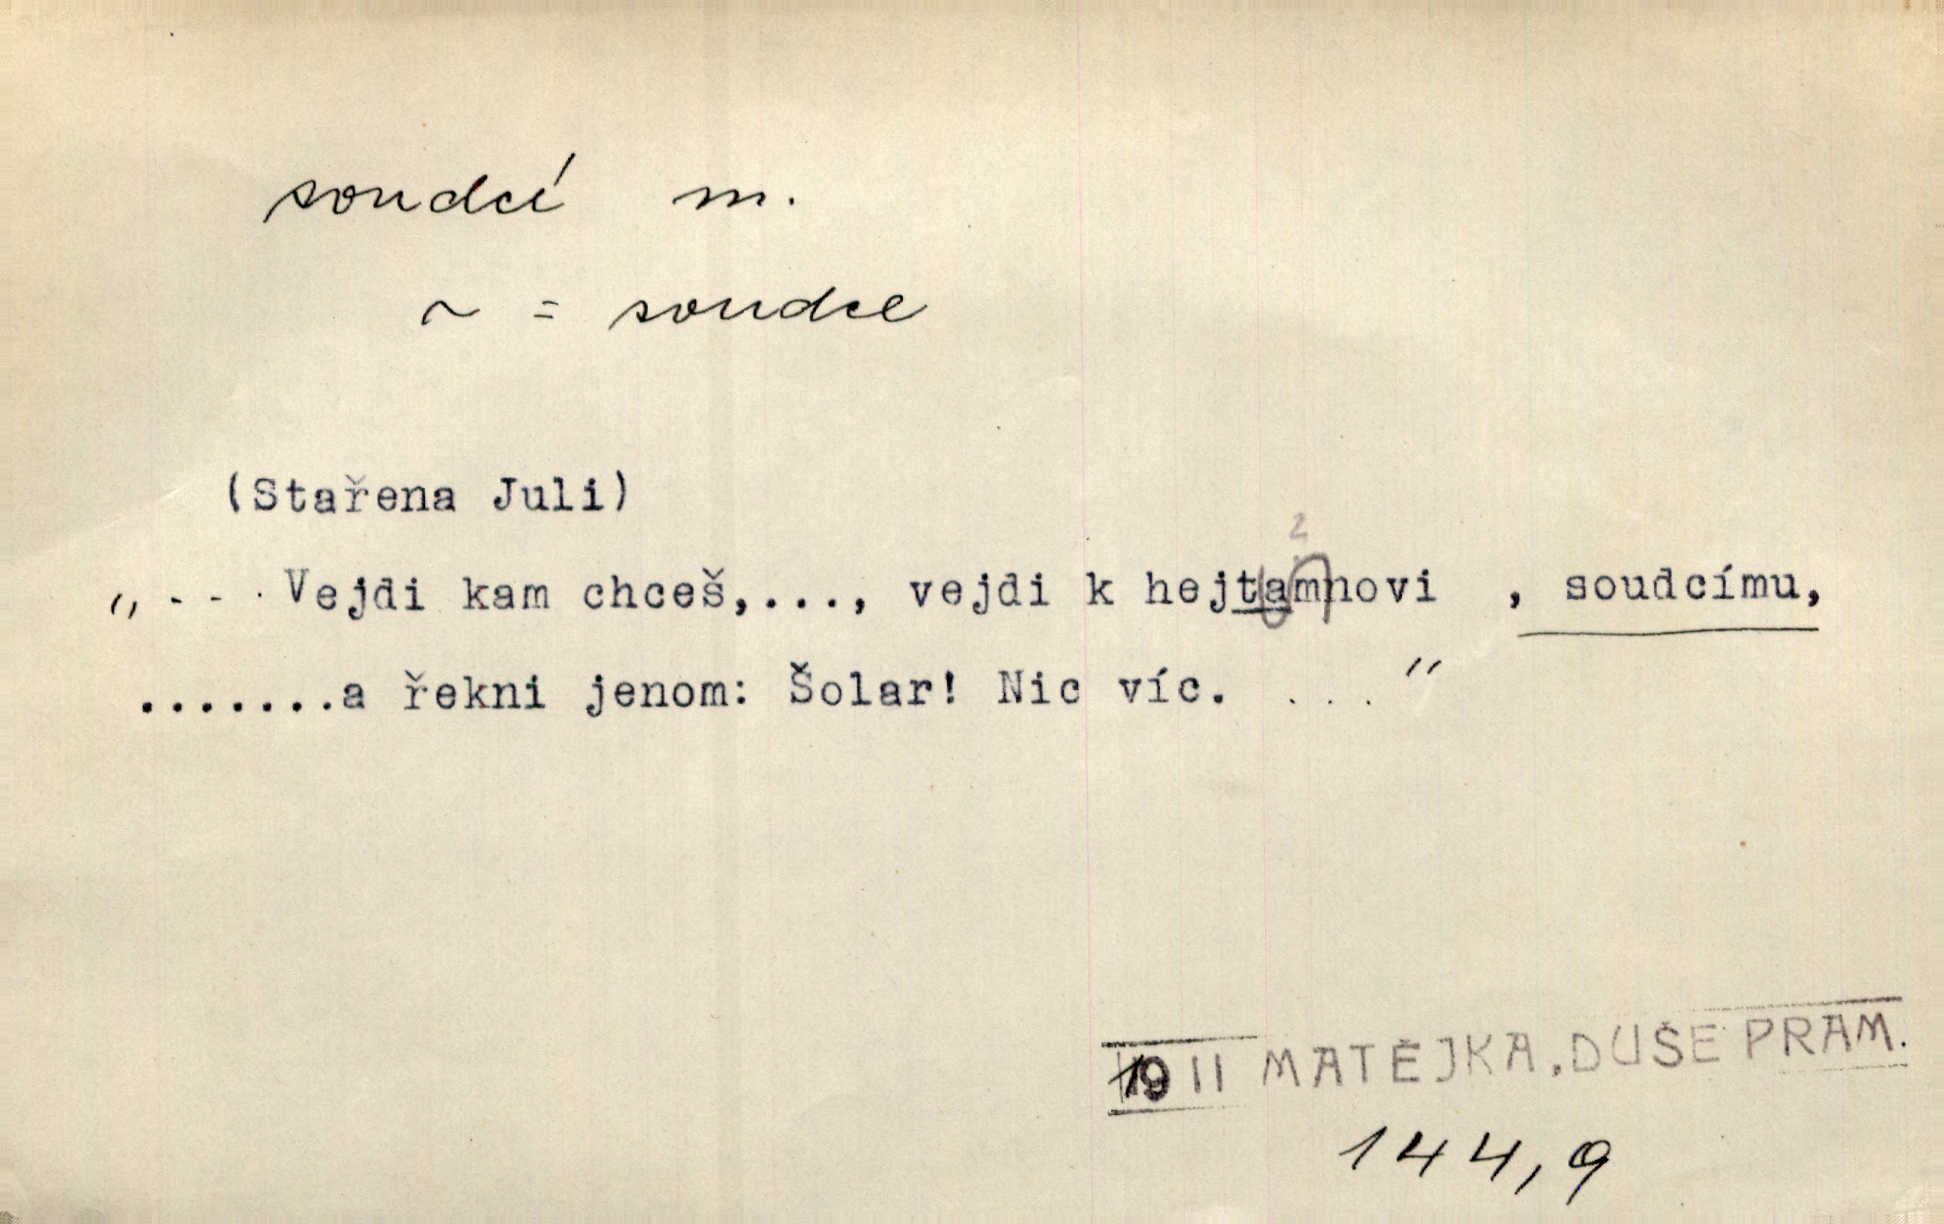 soudcí m.
~ = soudce
(Stařena Juli)
„ - - · Vejdi kam chceš,..., vejdi k hejtamnovi , soudcímu,
.......a řekni jenom: Šolar! Nic víc. . . . "
1911 MATĚJKA, DUŠE PRAM.
144,9